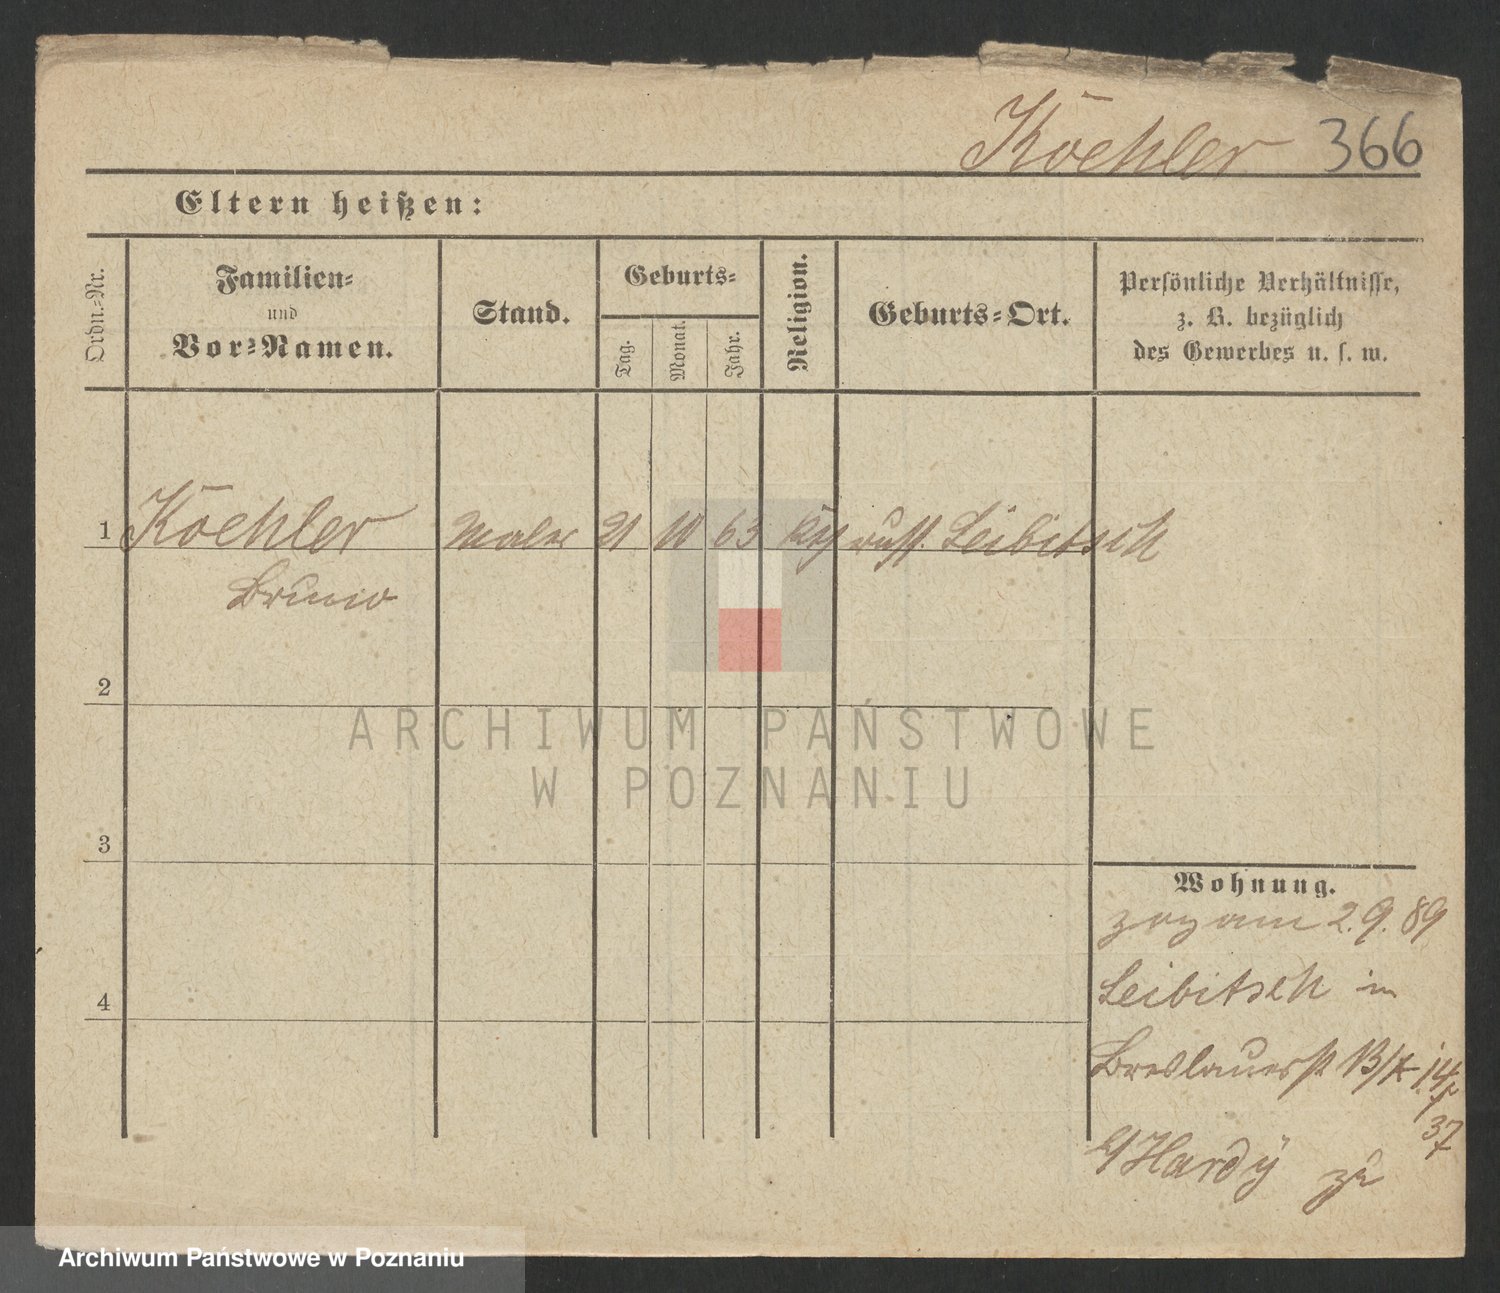 Koehler 366
Eltern heißen:
Ordn.-Nr.
Familien-
und
Vor-Namen.
Stand.
Geburts-
Tag.
Monat.
Jahr.
Religion.
Geburts-Ort.
Persönliche Verhältnisse,
z. B. bezüglich
des Gewerbes u. s. w.
1 Koehler Maler 21 10 63 russ. Leibitsch
Bruno
2
3
4
Wohnung.
zog am 2.9.89
Leibitsch in
Breslauerst 13/14
37
Hardÿ zu
ARCHIWUM PAŃSTWOWE
W POZNANIU
Archiwum Państwowe w Poznaniu